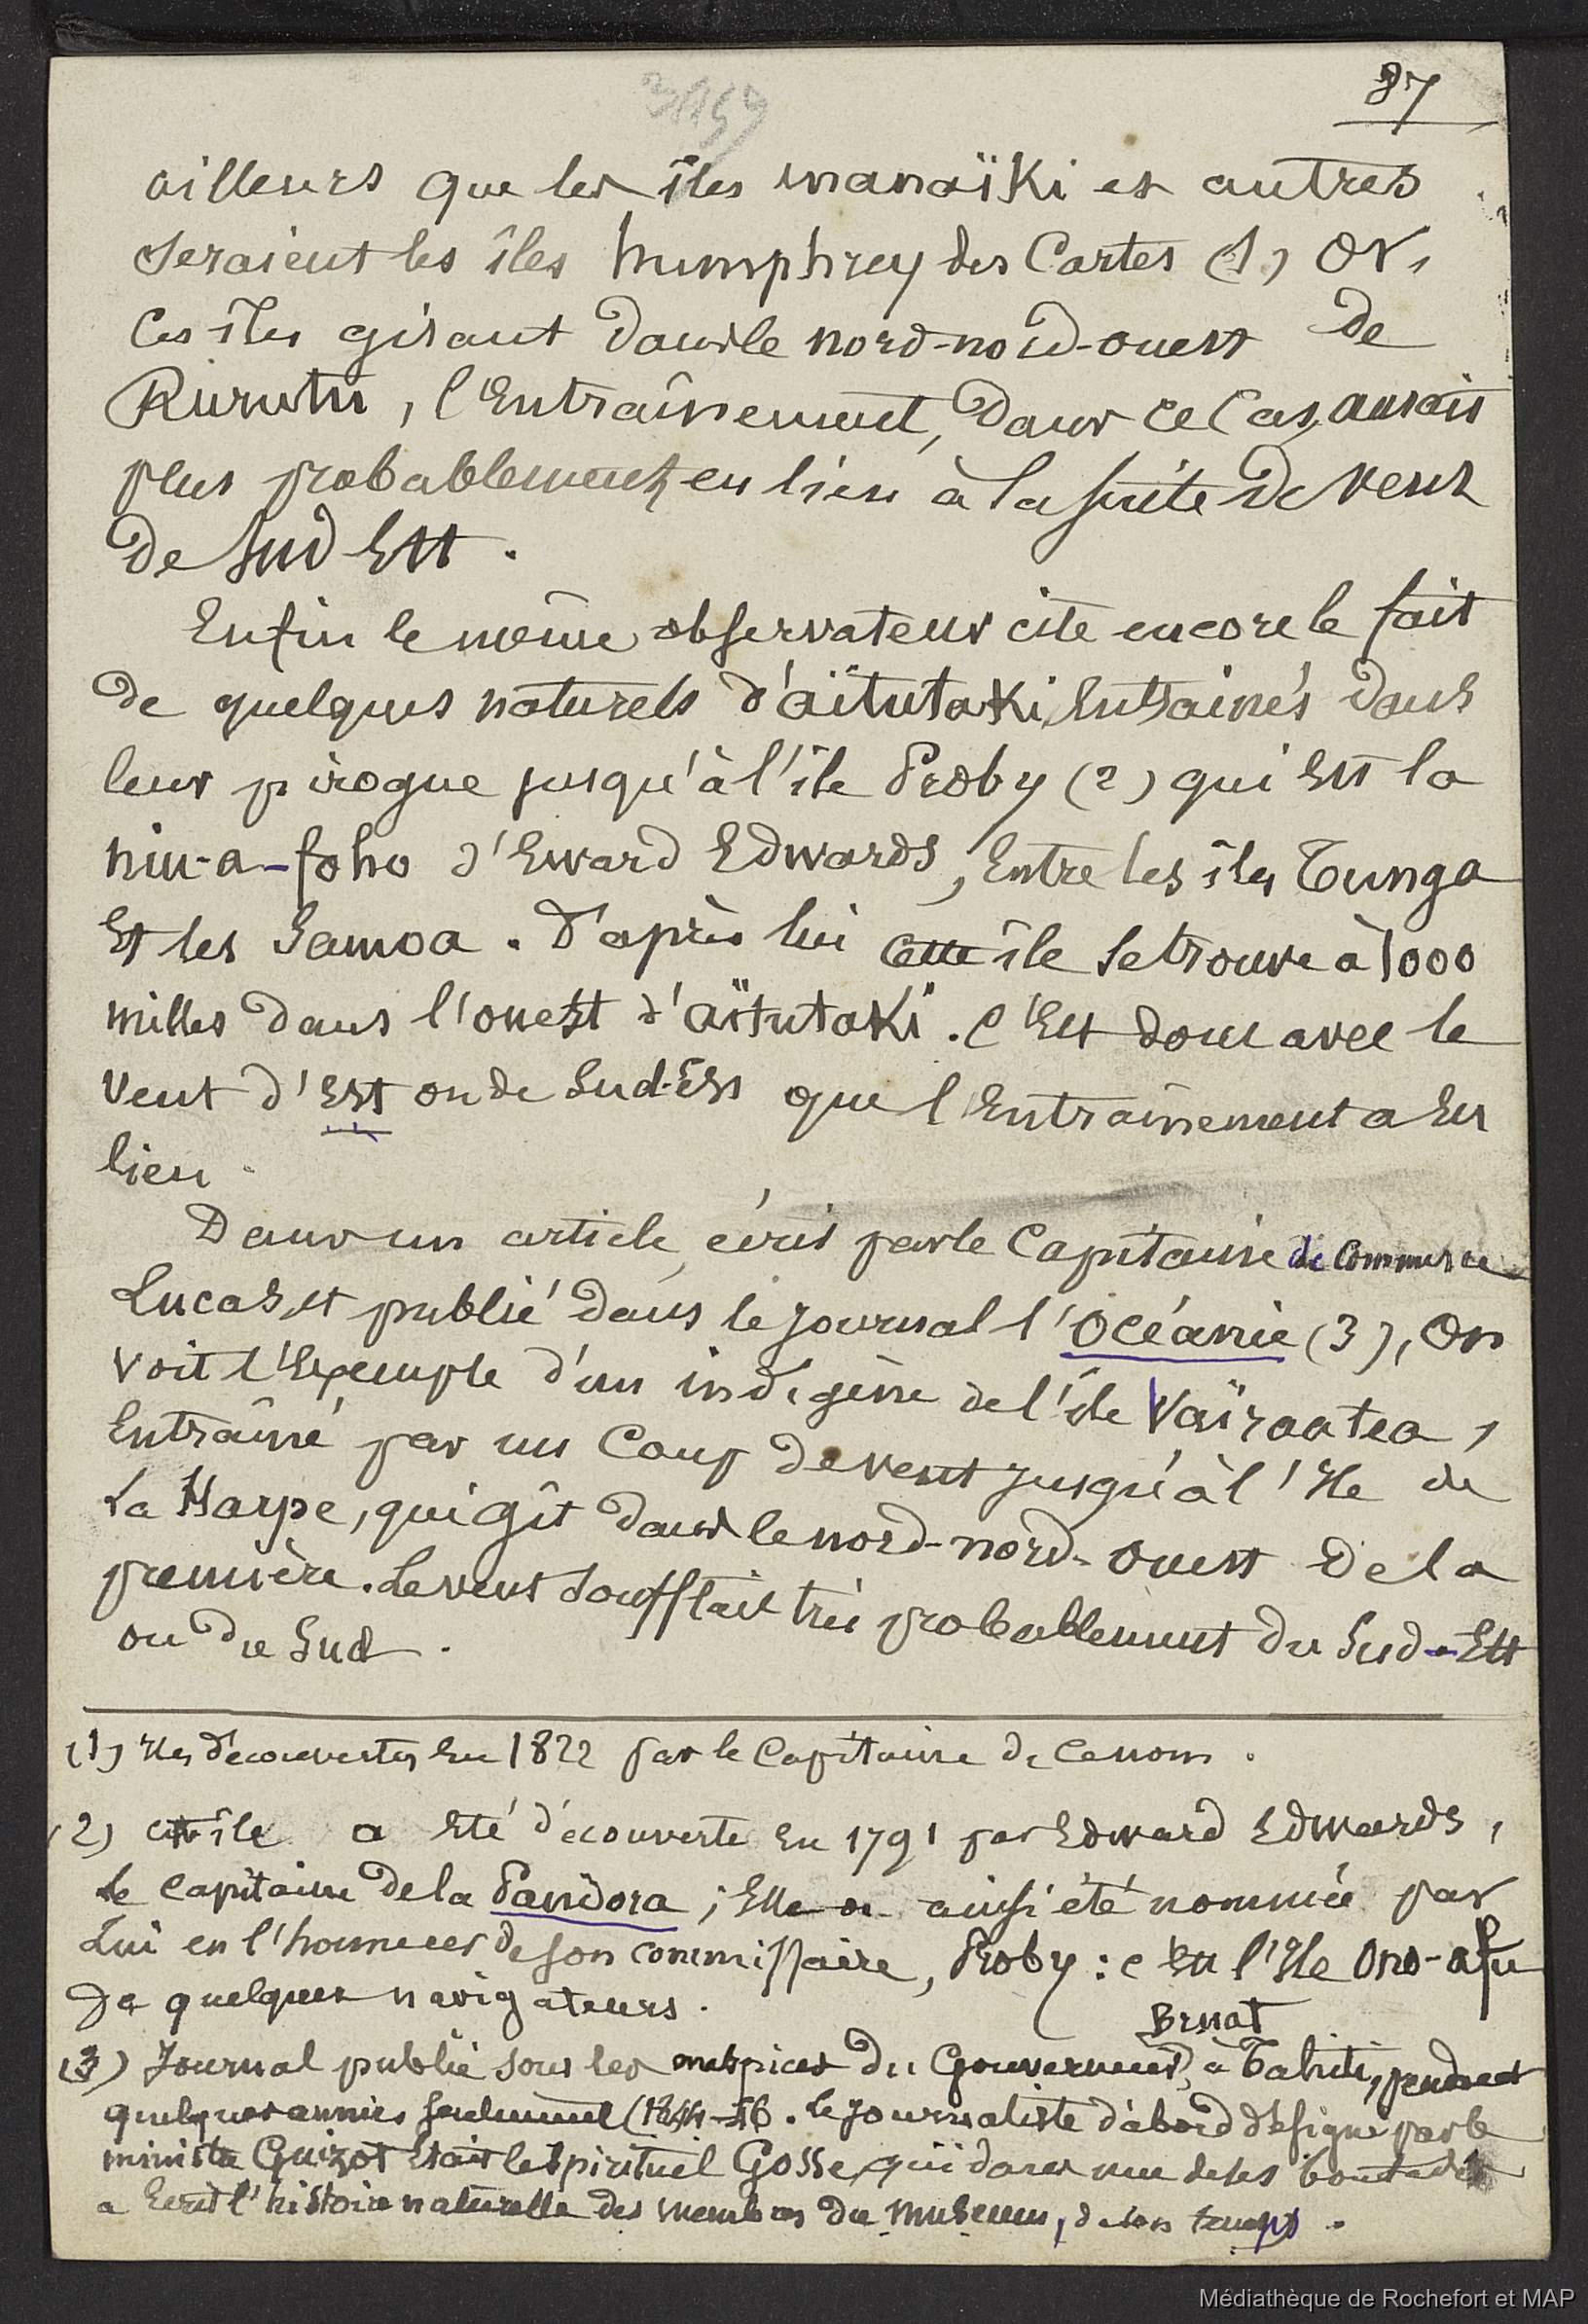 3159
37
ailleurs que les îles manaïki et autres
seraient les îles humphrey des Cartes (1) Or,
Ces îles gisant dans le nord-nord-ouest de
Rurutu, l'Entraînement, dans ce Cas, aurait
plus probablement eu lieu à la suite de vents
de Sud Est.
Enfin le même observateur cite encore le fait
de quelques naturels d'aïtutaki, Entrainés dans
leur pirogue jusqu'à l'île Proby (2) qui Est la
niu-a-foho d'Eward Edwards, Entre les îles Tunga
Et les Samoa. D'après lui Cette île se trouve à 1000
milles dans l'ouest d'aïtutaki. C'Est donc avec le
vent d'Est ou de Sud-Est que l'Entrainement a Eu
lieu.
Dans un article, écrit par le Capitaine de Commerce
Lucas, et publié dans le journal l'Océanie (3), On
voit l'Exemple d'un indigène de l'île Vaïraatea,
Entraîné par un Coup de vent jusqu'à l'Ile de
La Harpe, qui gît dans le nord-nord-Ouest de la
première. Le vent soufflait très probablement du Sud-Est
ou du Sud.
(1) Iles découvertes En 1822 par le Capitaine de Ce nom.
(2) cette île a Eté découverte En 1791 par Edward Edwards,
le Capitaine de la Pandora; Elle a ainsi été nommée par
Lui en l'honneur de son commissaire, Proby: c'Est l'Ile Ono-afu
de quelques navigateurs.
Bruat
(3) Journal publié sous les auspices du Gouverneur, à Tahiti, pendant
quelques années seulement. le journaliste d'abord désigné par le
ministre Guizot Etait le Spirituel Gosse, qui dans une de ses boutades
a Ecrit l'histoire naturelle des membres du Museum, de son temps.
Médiathèque de Rochefort et MAP